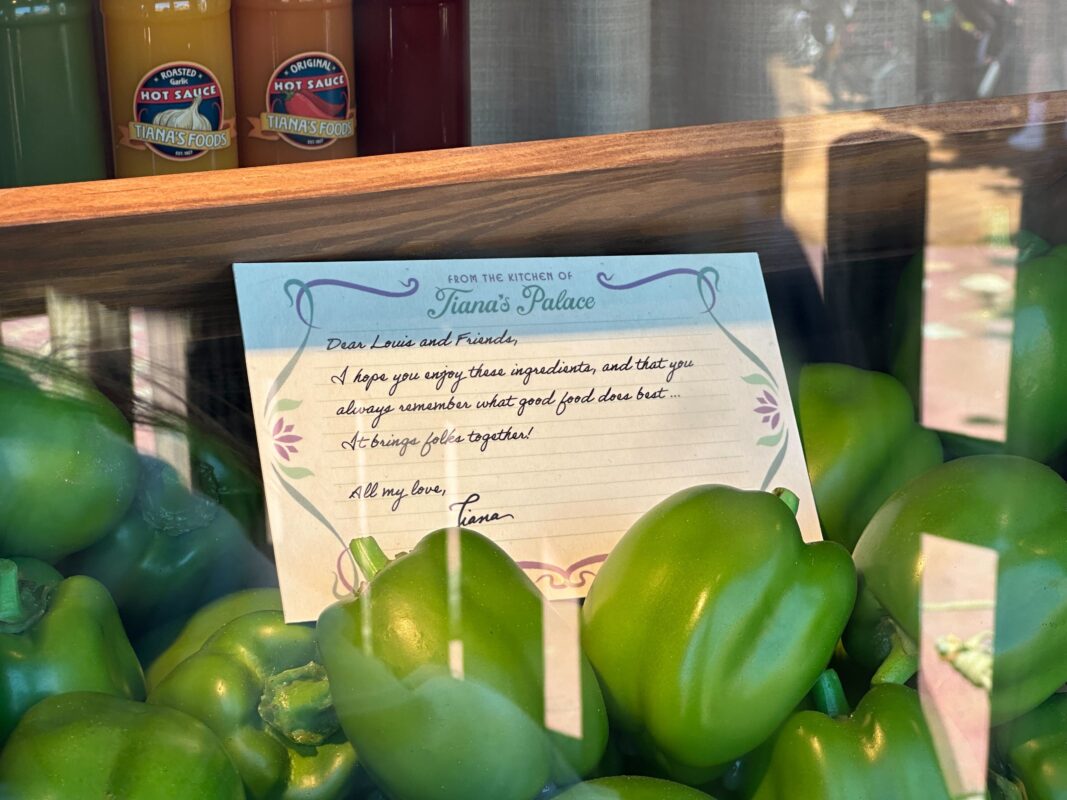 ROASTED
Garlic
HOT SAUCE
TIANA'S FOODS
ORIGINAL
HOT SAUCE
TIANA'S FOODS
EST. 1927
FROM THE KITCHEN OF
Tiana's Palace
Dear Louis and Friends,
I hope you enjoy these ingredients, and that you
always remember what good food does best ...
It brings folks together!
All my love,
Tiana